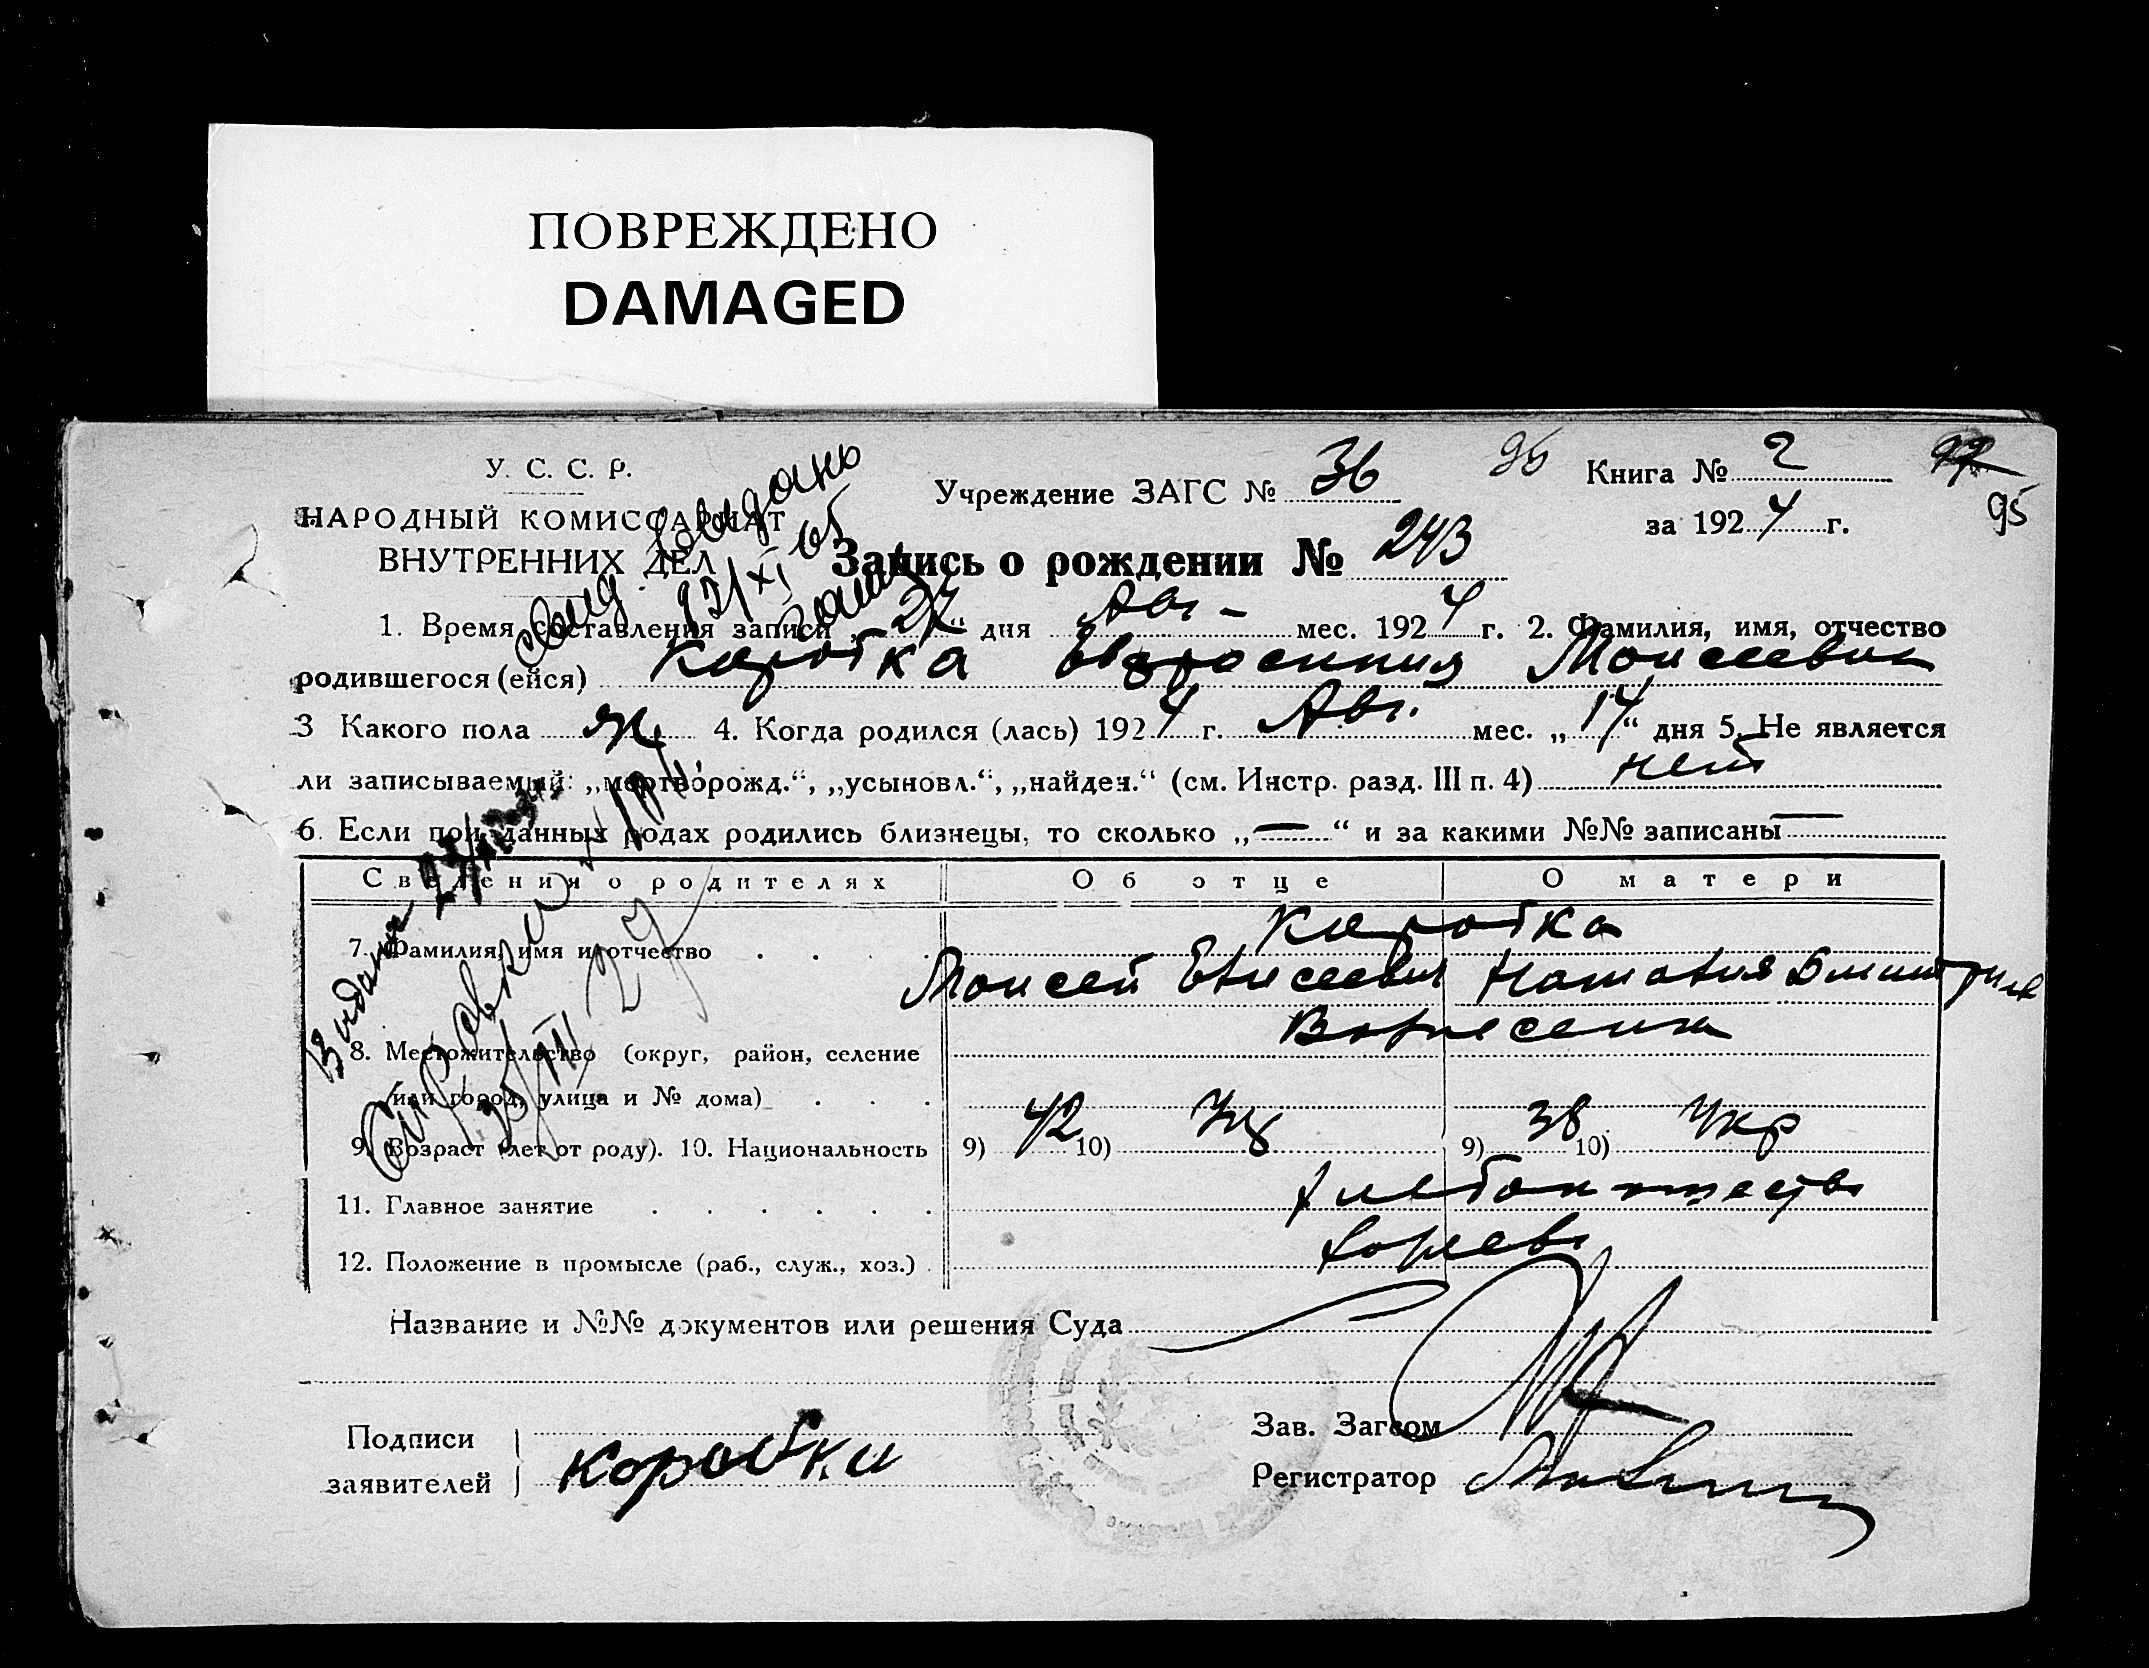 ПОВРЕЖДЕНО
DAMAGED
У. С. С. Р.
НАРОДНЫЙ КОМИССАРИАТ
ВНУТРЕННИХ ДЕЛ
Учреждение ЗАГС № 36
95
Книга № 2
за 1924 г.
95
Запись о рождении № 243
1. Время составления записи „27“ дня Авг- мес. 1924 г. 2. Фамилия, имя, отчество
родившегося (ейся) Коробка Евфросиния Моисеевна
3 Какого пола ж. 4. Когда родился (лась) 1924 г. Авг. мес. „14“ дня 5. Не является
ли записываемый: „мертворожд.“, „усыновл.“, „найден.“ (см. Инстр. разд. III п. 4) нет
6. Если при данных родах родились близнецы, то сколько „—“ и за какими №№ записаны —
Сведения о родителях Об отце О матери
Коробка
7. Фамилия, имя и отчество . . . Моисей Елисеевич Наталия
8. Местожительство (округ, район, селение
Вознесенка
или город, улица и № дома) . . .
9. Возраст (лет от роду). 10. Национальность 9) 42 10) Укр 9) 38 10) Укр
11. Главное занятие . . . . . . хлебопашество
12. Положение в промысле (раб., служ., хоз.) . хозяева
Название и №№ документов или решения Суда
Подписи
заявителей
Коробка
Зав. Загсом
Регистратор
свид. выдано
12/XI 65
Выдана
Справка